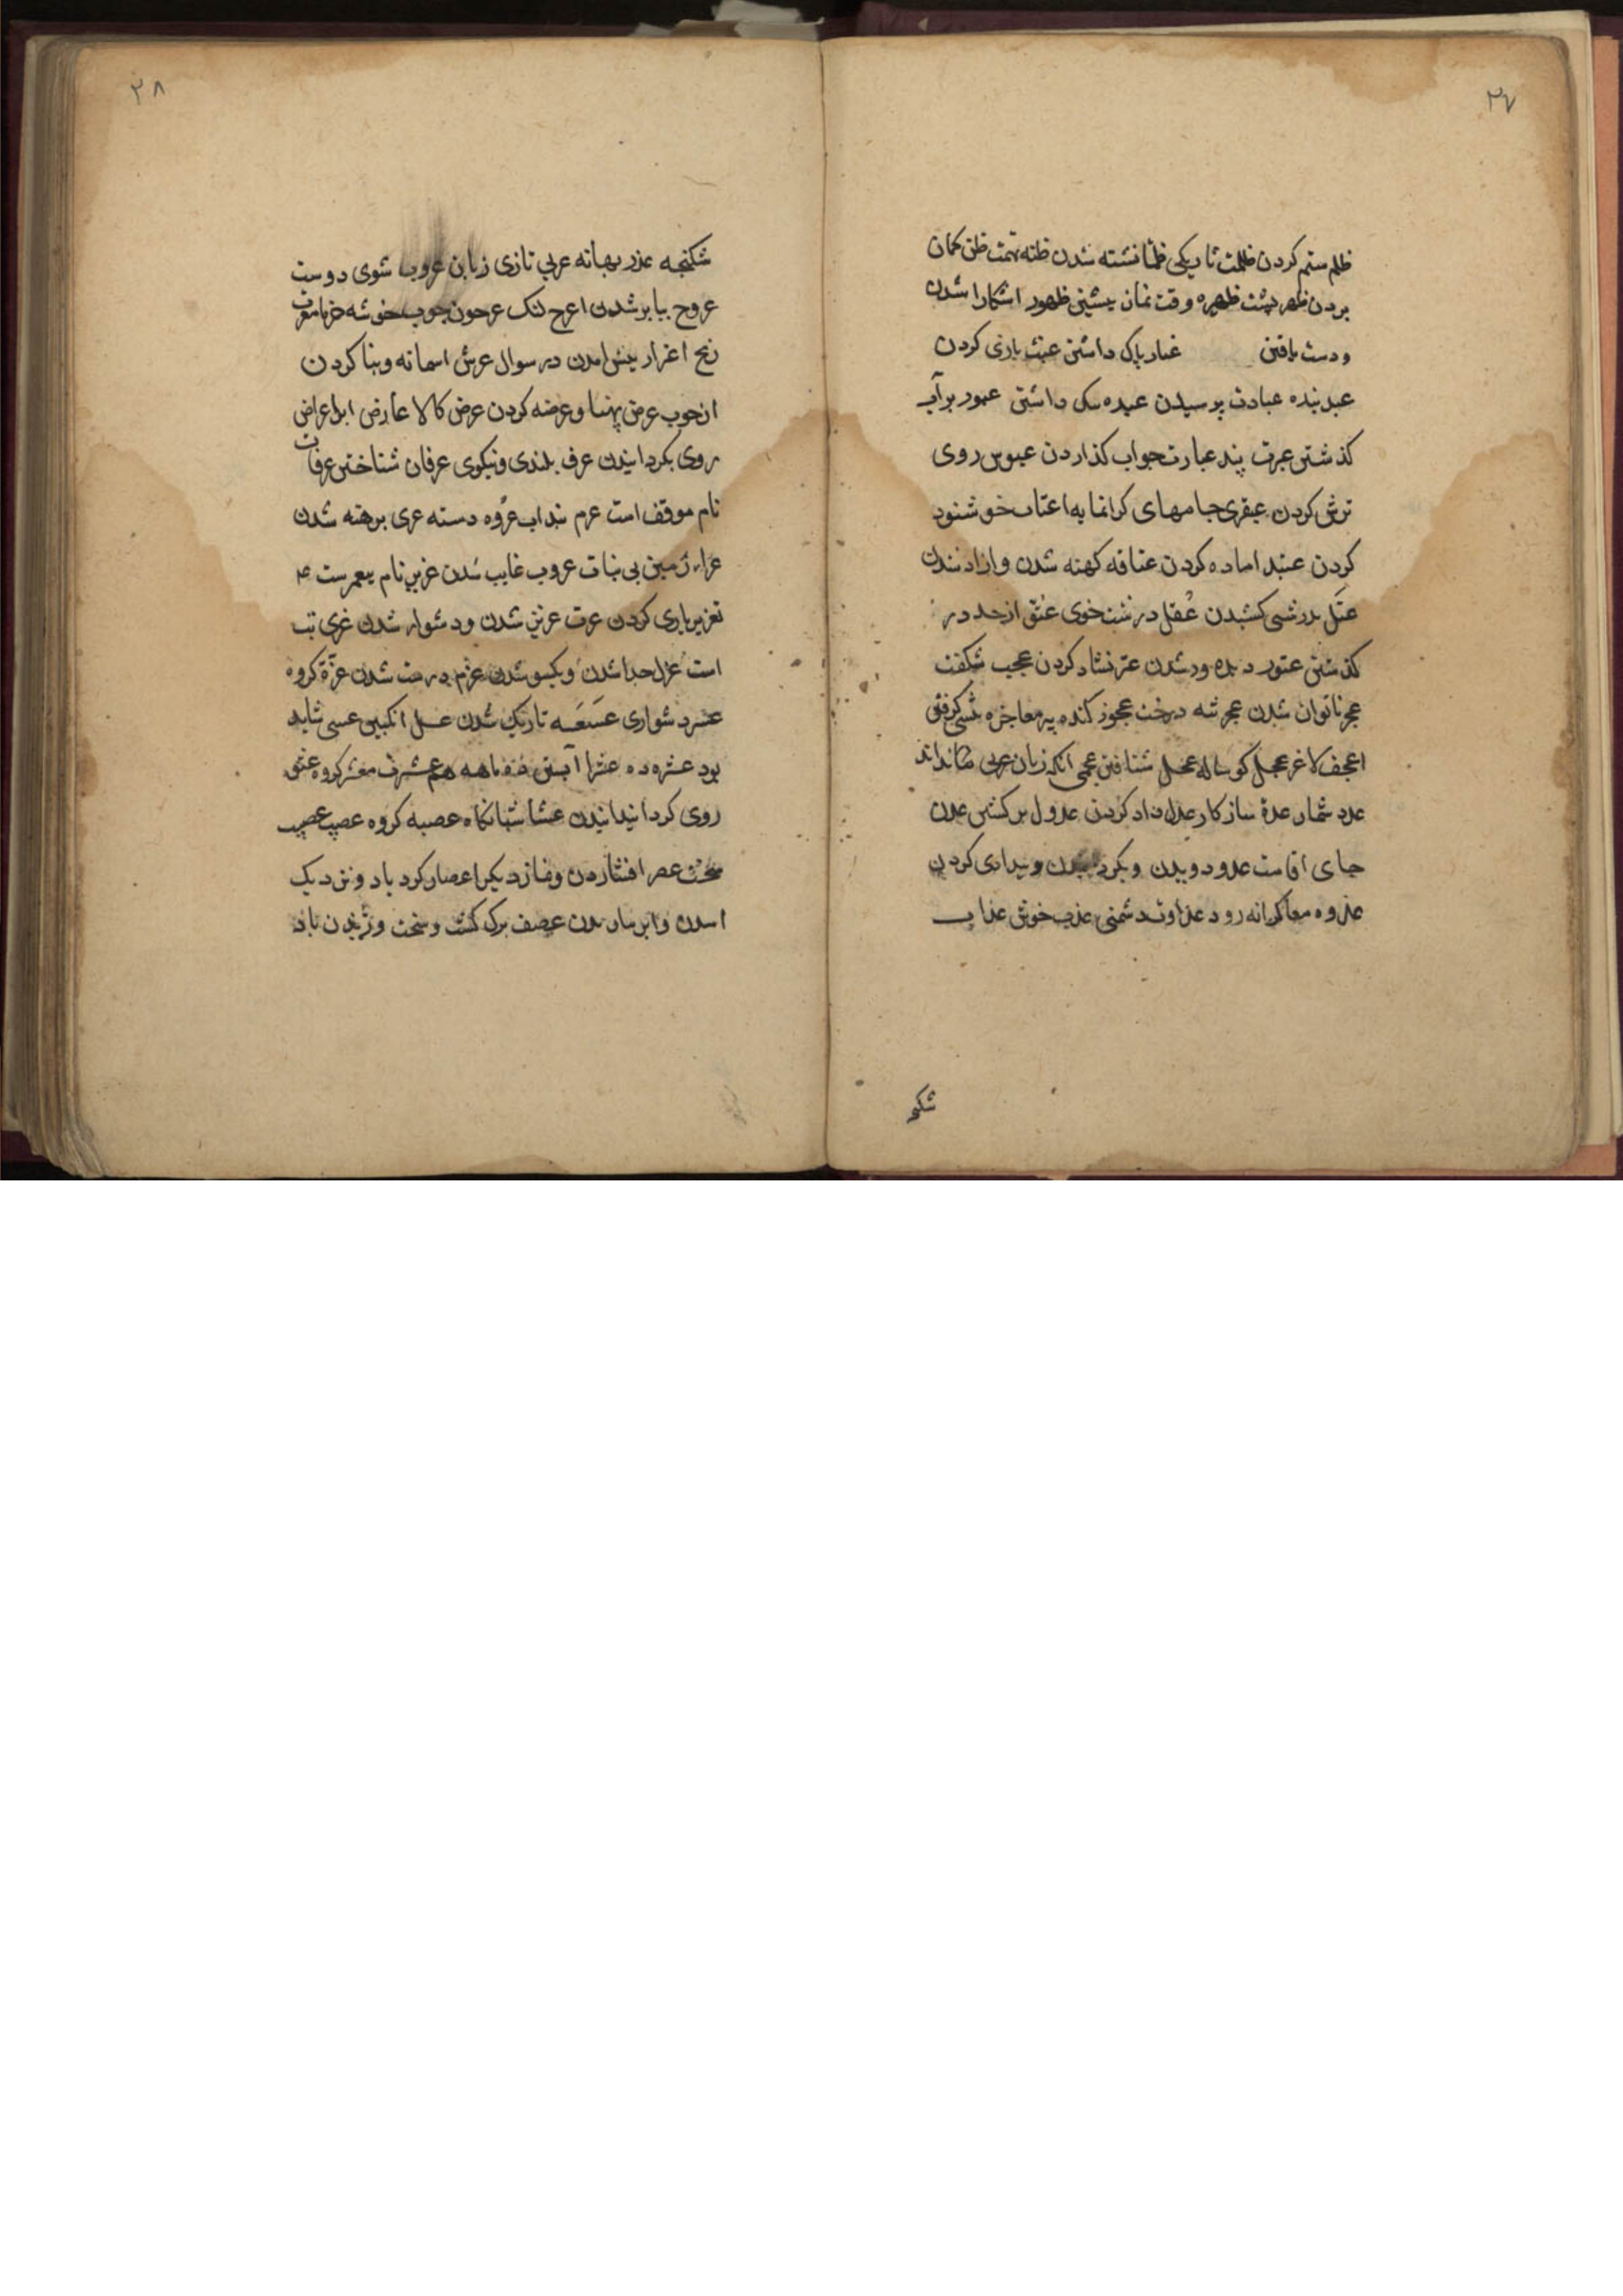 ۲۷
ظلم ستم کردن ظلمت تاریکی ظمأ تشنه شدن ظنه تهمت ظن کمان
بردن ظهر پشت ظهیره وقت نماز پیشین ظهور اشکارا شدن
و دست یافتن عبار باک داشتن عبث بازی کردن
عبد بنده عبادت پرسیدن عبده داشتن عبور بر آب
کذشتن عبرت پند عبارت جواب کذاردن عبوس روی
ترش کردن عبقری جامهای کرانمایه اعتاب خوشنود
کردن عتید اماده کردن عتاقه کهنه شدن و ازاد شدن
عتل بدرشتی کشیدن عُتُل درشت خوی عتو از حد در
کذشتن عثور دیده ور شدن عجیب شکفت
عجز ناتوان شدن عجز تنه درخت عجوز کنده پیر معاجزه پیشی کرفتن
اعجف لاغر عجل کوساله عجل شتافتن عجمی انکه زبان عربی نداند
عدد شمار عدة ساز کار عدل داد کردن عدول بر کشتن عدن
جای اقامت عدو دویدن و بیدادی کردن
عدوه کرانه رود عداوت دشمنی عذب خوش عذاب
شکنجه
۲۸
شکنجه عذر بهانه عربی تازی زبان عروب شوی دوست
عروج ببا بر شدن اعرج لنک عرجون چوب خوشه خرما معرت
رنج اعترار پیش امدن در سوال عرش اسمانه و بنا کردن
از چوب عرض پهنا و عرضه کردن عرض کالا عارض ابر اعراض
روی بکردانیدن عرف بلندی و نیکوی عرفان شناختن عرفات
نام موقف است عرم بنداب عروه دسته عری برهنه شدن
عراء زمین بی نبات عزوب غایب شدن عزیر نام پیغمبرست
تعزیر یاری کردن عزت عزیز شدن و دشوار شدن عزی بت
است عزل جدا شدن و یکسو شدن عزم درست شدن عزة کروه
عسر دشواری عَسعَسه تاریک شدن عسل انکبین عسی شاید
بود عشره ده عشرا آبستن ده ماهه عشیرت معشر کروه عشو
روی کردانیدن عشا شبانکاه عصبه کروه عصیب
سخت عصر افشاردن و نماز دیکر اعصار کرد باد و نزدیک
امدن و ابر عصف برک کشت و سخت وزیدن باد